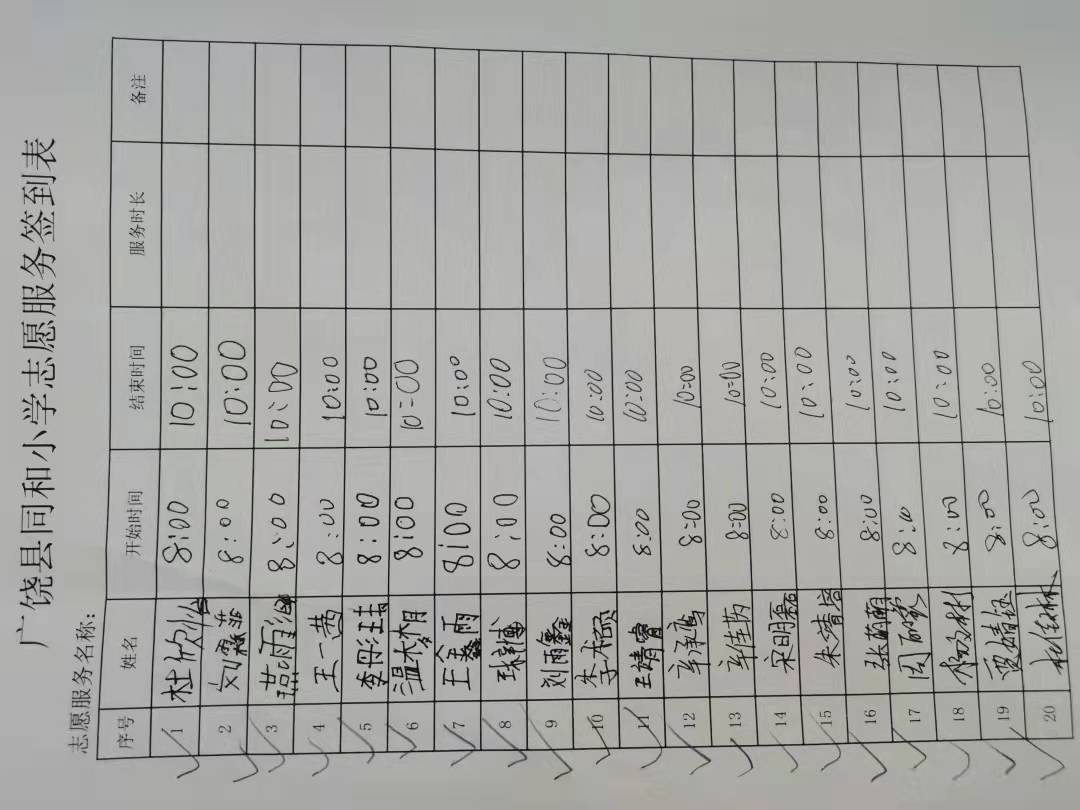 广饶县同和小学志愿服务签到表
志愿服务名称：
序号 姓名 开始时间 结束时间 服务时长 备注
1 杜欣怡 8:00 10:00
2 刘霖菲 8:00 10:00
3 燕雨涵 8:00 10:00
4 王一茜 8:00 10:00
5 李彤 8:00 10:00
6 温梦月 8:00 10:00
7 王鑫雨 8:00 10:00
8 博 8:00 10:00
9 刘雨鑫 8:00 10:00
10 李 8:00 10:00
11 王靖睿 8:00 10:00
12 8:00 10:00
13 8:00 10:00
14 宋明磊 8:00 10:00
15 朱 8:00 10:00
16 张萌萌 8:00 10:00
17 周 8:00 10:00
18 杨 8:00 10:00
19 8:00 10:00
20 杜 8:00 10:00